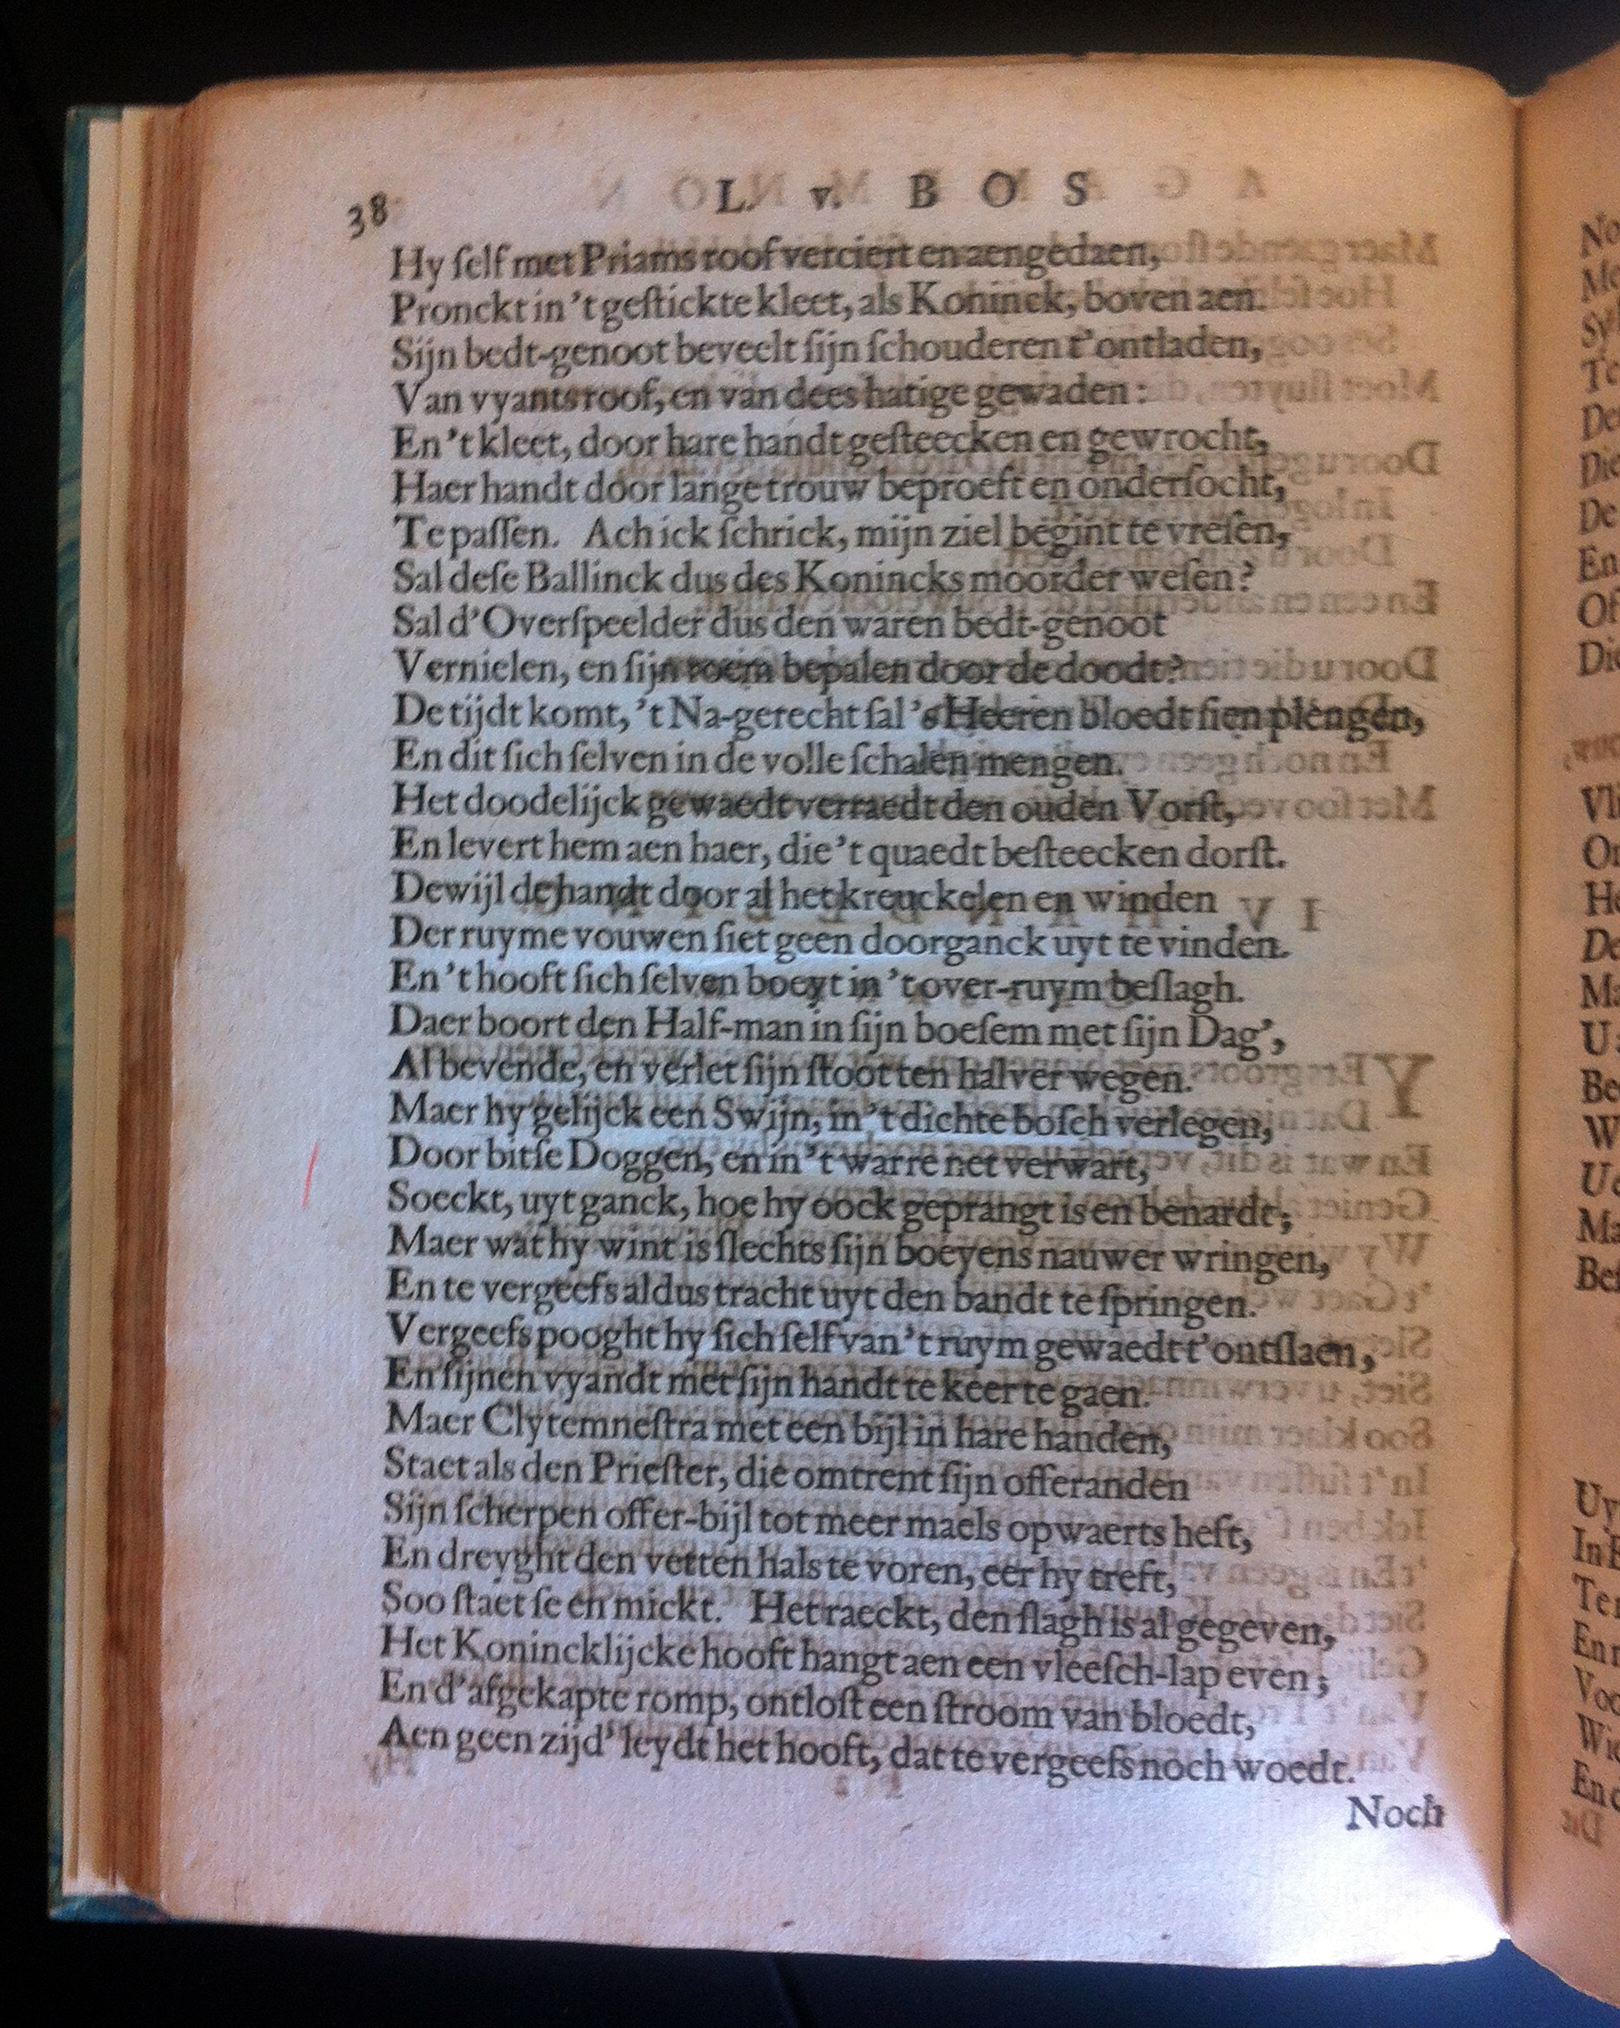 38 L. v. BOS
Hy ſelf met Priams roof verciert en aengedaen,
Pronckt in ’t geſtickte kleet, als Koninck, boven aen.
Sijn bedt-genoot beveelt ſijn ſchouderen t’ontladen,
Van vyants roof, en van dees hatige gewaden:
En ’t kleet, door hare handt geſteecken en gewrocht,
Haer handt door lange trouw beproeft en onderſocht,
Te paſſen. Ach ick ſchrick, mijn ziel begint te vreſen,
Sal deſe Ballinck dus des Konincks moorder weſen?
Sal d’Overſpeelder dus den waren bedt-genoot
Vernielen, en ſijn roem bepalen door de doodt?
De tijdt komt, ’t Na-gerecht ſal ’s Heeren bloedt ſien plengen,
En dit ſich ſelven in de volle ſchalen mengen.
Het doodelijck gewaedt verraedt den ouden Vorſt,
En levert hem aen haer, die ’t quaedt beſteecken dorſt.
Dewijl de handt door al het kreuckelen en winden
Der ruyme vouwen ſiet geen doorganck uyt te vinden.
En ’t hooft ſich ſelven boeyt in ’t over-ruym beſlagh.
Daer boort den Half-man in ſijn boeſem met ſijn Dag’,
Al bevende, en verlet ſijn ſtoot ten halver wegen.
Maer hy gelijck een Swijn, in ’t dichte boſch verlegen,
Door bitſe Doggen, en in ’t warre net verwart,
Soeckt, uyt ganck, hoe hy oock geprangt is en benardt;
Maer wat hy wint is ſlechts ſijn boeyens nauwer wringen,
En te vergeefs aldus tracht uyt den bandt te ſpringen.
Vergeefs pooght hy ſich ſelf van ’t ruym gewaedt t’ontſlaen,
En ſijnen vyandt met ſijn handt te keer te gaen.
Maer Clytemneſtra met een bijl in hare handen,
Staet als den Prieſter, die omtrent ſijn offeranden
Sijn ſcherpen offer-bijl tot meer maels opwaerts heft,
En dreyght den vetten hals te voren, eer hy treft,
Soo ſtaet ſe en mickt. Het raeckt, den ſlagh is al gegeven,
Het Konincklijcke hooft hangt aen een vleeſch-lap even;
En d’afgekapte romp, ontloſt een ſtroom van bloedt,
Aen geen zijd’ leydt het hooft, dat te vergeefs noch woedt.
Noch
No
De
Die
De
En
Of
Die
Vli
On
He
De
Ma
U
Be
W
Ma
Bef
Uy
In
Te
En
Voo
Wie
En